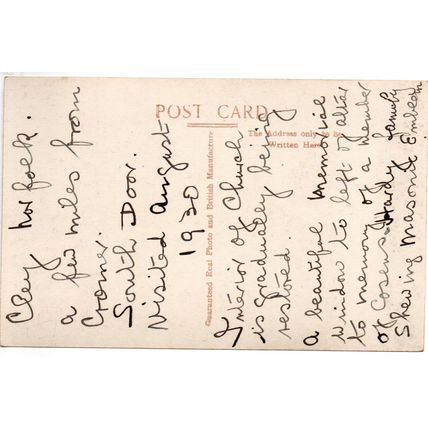 POST CARD
The Address only to be
Written Here
Guaranteed Real Photo and British Manufacture
Cley Norfolk.
a few miles from
Cromer.
South Door.
Visited August
1930
Interior of Church
is gradually being
restored.
a beautiful memorial
window to left of altar
to memory of a member
of Cosens-Hardy family
Shewing masonic Emblems